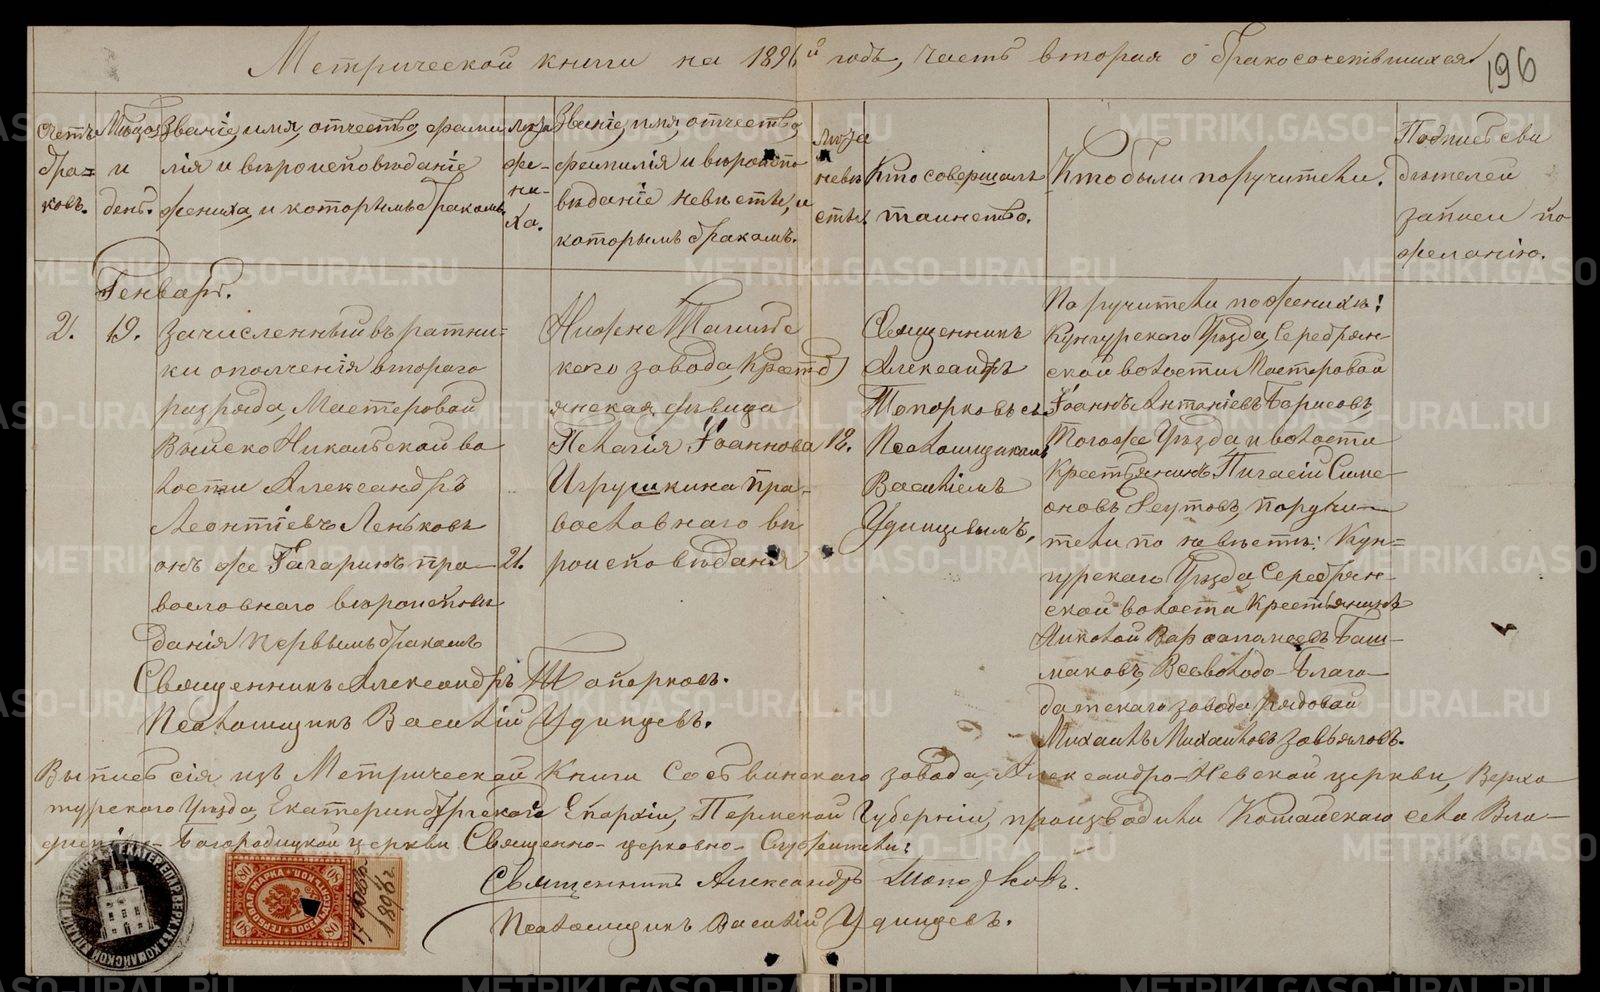 Метрической книги на 1896й годъ, часть вторая о бракосочетавшихся
196
Счетъ браковъ.
Мѣсяцъ и день.
Званіе, имя, отчество, фамилія и вѣроисповѣданіе жениха, и которымъ бракомъ.
Лѣта жениха.
Званіе, имя, отчество, фамилія и вѣроисповѣданіе невѣсты, и которымъ бракомъ.
Лѣта невѣсты.
Кто совершалъ таинство.
Кто были поручители.
Подпись свидѣтелей записи по желанію.
Генварь.
2.
19.
Зачисленный въ ратни-
ки ополченія второго
разряда, Мастеровой
Выйско Никольской во
лости Александръ
Леонтіевъ Леньковъ
онъ же Гагаринъ пра-
вославнаго вѣроисповѣ
данія первымъ бракомъ
21.
Нижне Тагильс
каго завода, Крестьь
янская дѣвица
Пелагія Іоаннова
Игрушкина пра-
вославнаго вѣ
роисповѣданія
18.
Священникъ
Александръ
Топорковъ съ
Псаломщикомъ
Василіемъ
Удинцевымъ,
Поручители по женихѣ:
Кунгурскаго Уѣзда, Серебрян-
ской волости Мастеровой
Іоаннъ Антоніевъ Борисовъ,
Тогоже Уѣзда и волости
Крестьянинъ Симе-
оновъ поручи-
тели по невѣстѣ: Кун-
гурскаго Уѣзда Серебрян-
ской волости Крестьянинъ
Николай Варѳоломеевъ Баш-
маковъ, Всеволодо-Благо-
датскаго завода рядовой
Михаилъ Михаиловъ Завьяловъ.
Священникъ Александръ Топорковъ.
Псаломщикъ Василій Удинцевъ.
Выпись сія изъ Метрической Книги Сосьвинскаго завода, Александро-Невской церкви, Верхо
турскаго Уѣзда, Екатеринбургской Епархіи, Пермской Губерніи, производили Кошайскаго села Вла-
димірско-Богородицкой церкви Священно-церковно-Служители:
Священникъ Александръ Топорковъ.
Псаломщикъ Василій Удинцевъ.
80
ГЕРБОВАЯ МАРКА
ВОСЕМЬДЕСЯТЪ КОП.
1896 г.
METRIKI.GASO-URAL.RU